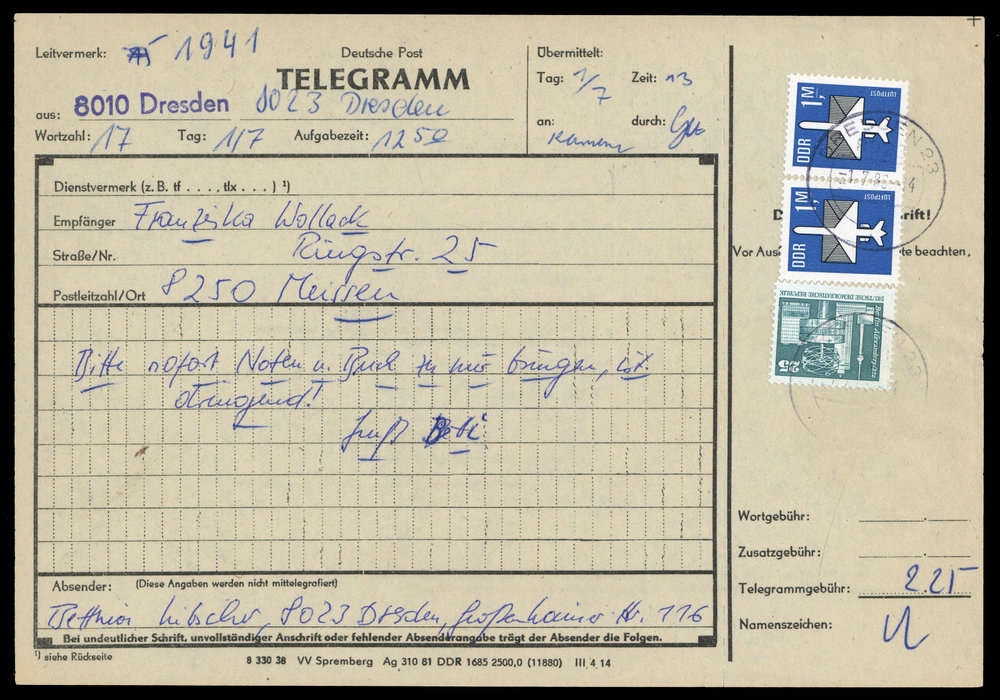 Leitvermerk: 1941
Deutsche Post
TELEGRAMM
Übermittelt:
Tag: 1/7 Zeit: 13
aus: 8010 Dresden 8023 Dresden
Wortzahl: 17 Tag: 1/7 Aufgabezeit: 1250
an: durch:
Dienstvermerk (z. B. tf . . . . , tlx . . . ) ¹)
Empfänger Franziska Wollack
Straße/Nr. Ringstr. 25
Postleitzahl/Ort 8250 Meissen
Bitte sofort Noten u. Buch zu mir bringen, ist
dringend!
Gruß Betti
Absender: (Diese Angaben werden nicht mittelegrafiert)
8023 Dresden, Großenhainer Str. 116
Bei undeutlicher Schrift, unvollständiger Anschrift oder fehlender Absenderangabe trägt der Absender die Folgen.
¹) siehe Rückseite
8 330 38 VV Spremberg Ag 310 81 DDR 1685 2500,0 (11880) III 4 14
1M LUFTPOST
DDR
1M LUFTPOST
DDR
DEUTSCHE DEMOKRATISCHE REPUBLIK
Berlin, Alexanderplatz
25
Vor beachten,
Wortgebühr:
Zusatzgebühr:
Telegrammgebühr: 2.25
Namenszeichen: